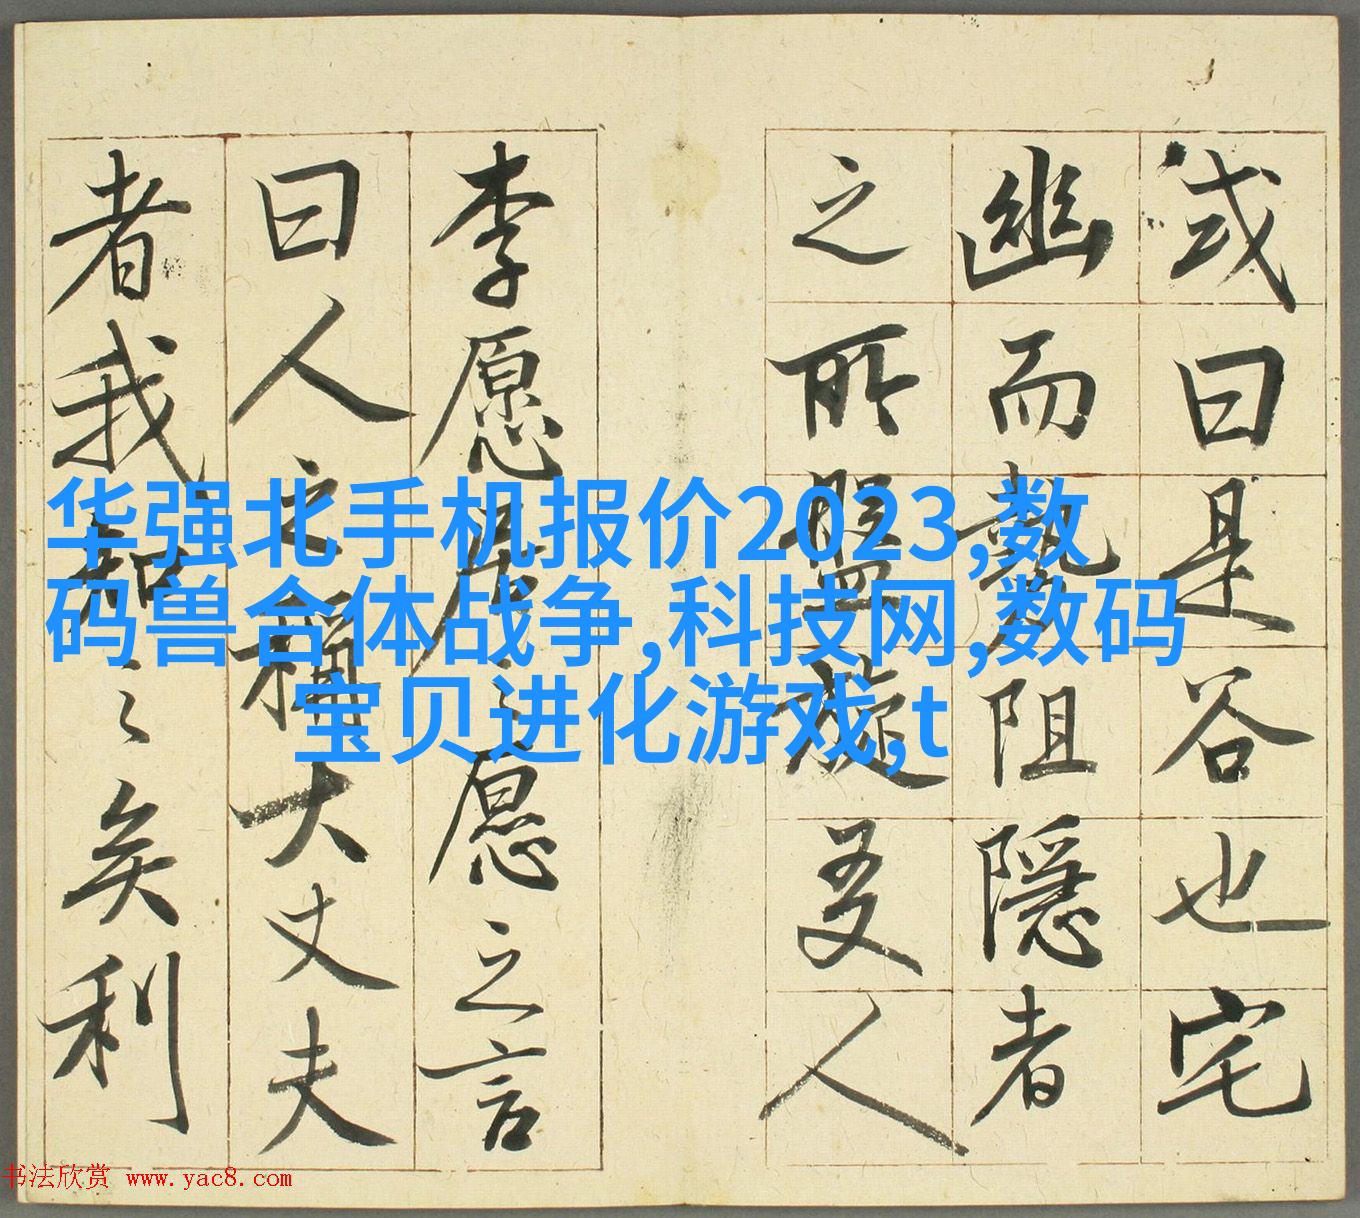 或曰是谷也宅
幽而埶阻隱者
之所盤旋友人
李愿居之愿之言
曰人之稱大丈夫
者我知之矣利
华强北手机报价2023,数
码兽合体战争,科技网,数码
宝贝进化游戏,t
书法欣赏 www.yac8.com